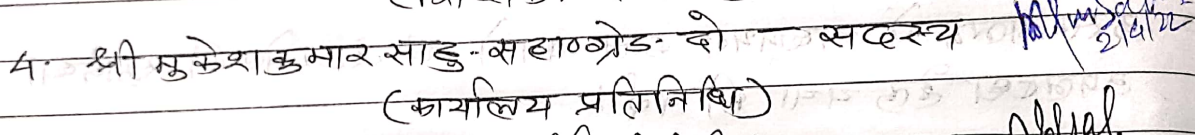 4. श्री मुकेश कुमार साहु - सहा०ग्रेड- दो — सदस्य 2/4/22
(कार्यालय प्रतिनिधि)